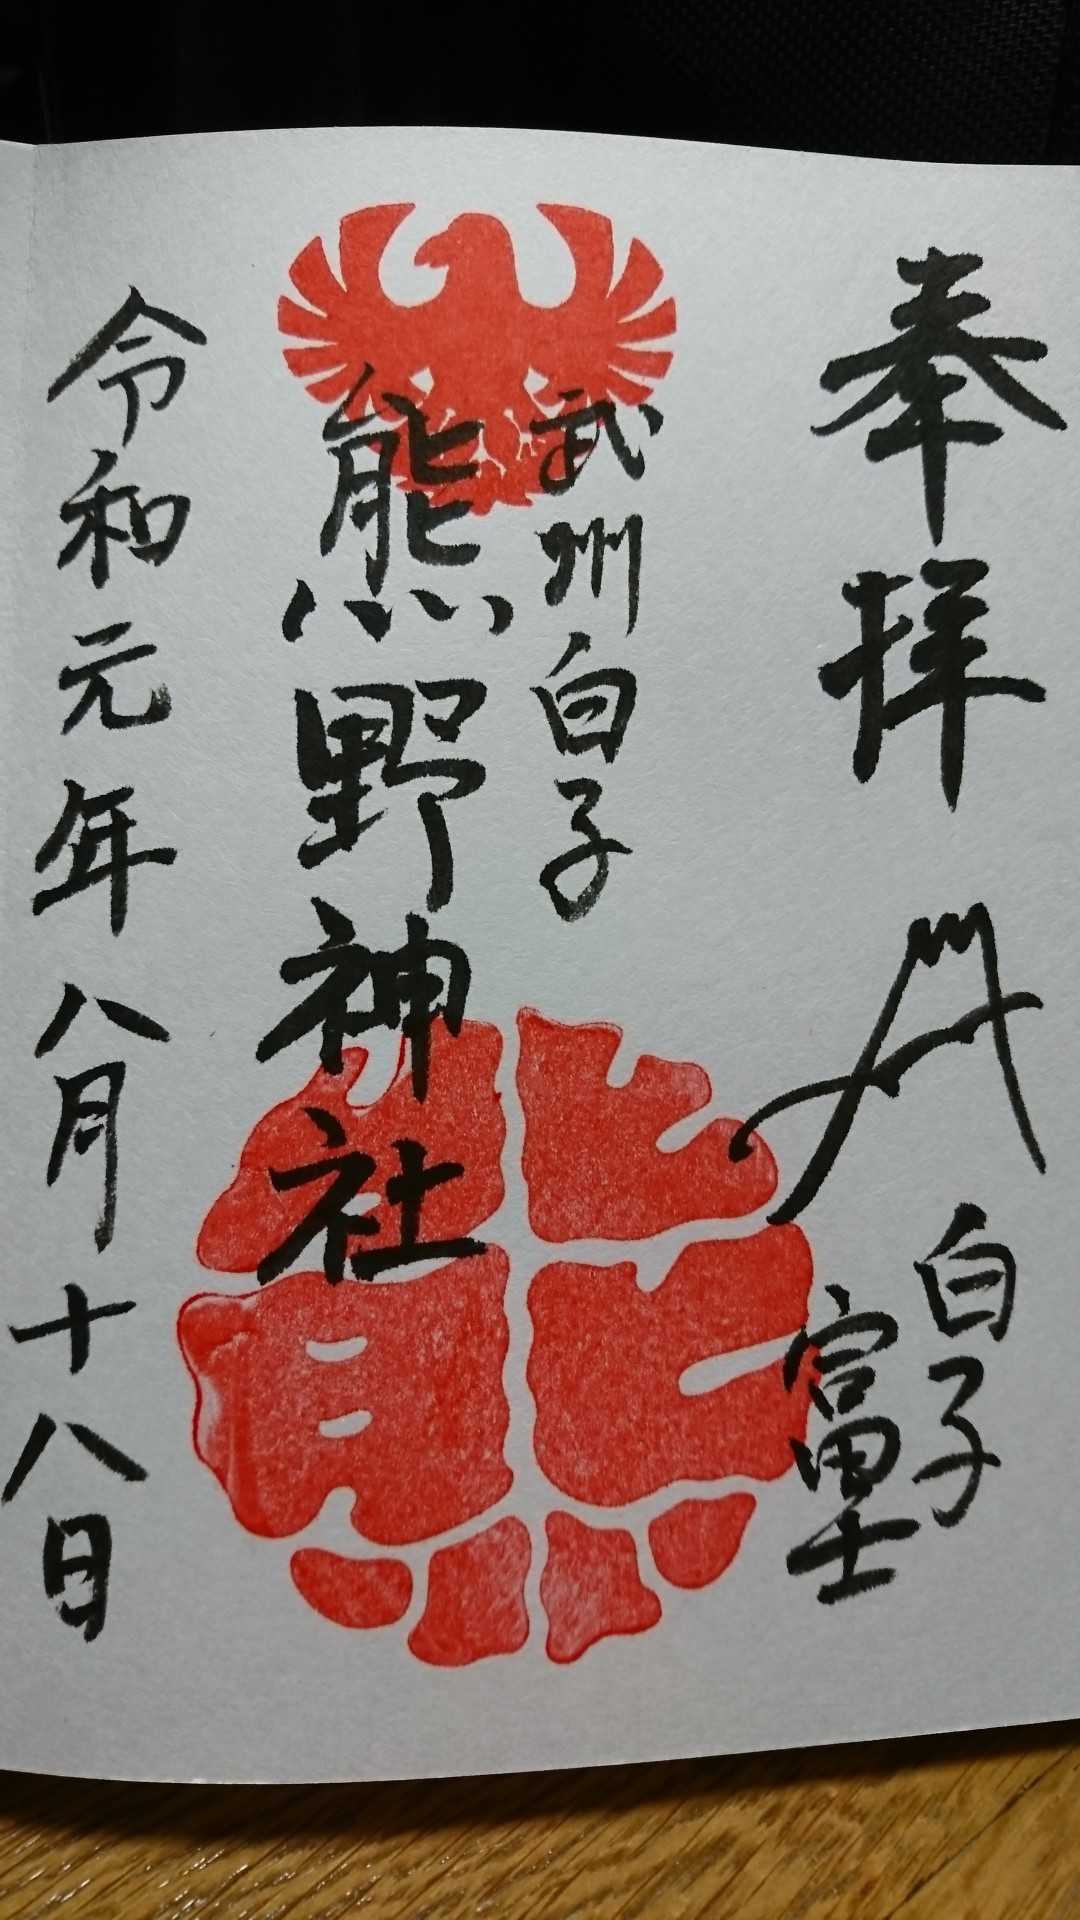 奉拝
白子
富士
武州白子
熊野神社
令和元年八月十八日